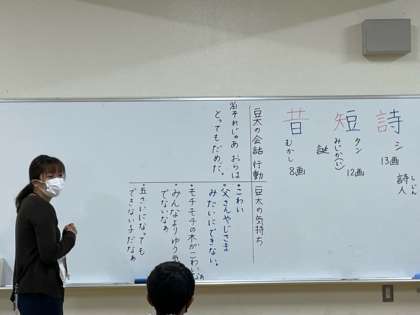 詩
シ
13画
しじん
詩人
短
タン
みじか(い)
12画
謎
昔
むかし
8画
豆太の会話 行動
豆太の気持ち
それじゃあ おらは
とってもだめだ。
・こわい
・父さんやじさま
みたいにできない。
・モチモチの木がこわいなぁ
・みんなよりゆうき
でないなぁ
・五さいになっても
できない子だなぁ